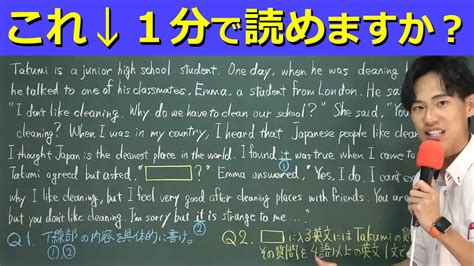 これ↓１分で読めますか？
Takumi is a junior high school student. One day, when he was cleaning
he talked to one of his classmates, Emma, a student from London. He
"I don't like cleaning. Why do we have to clean our school?" She said, "You
cleaning? When I was in my country, I heard that Japanese people like clean
I thought Japan is the cleanest place in the world. I found it was true when I came to
①
Takumi agreed but asked, " ?" Emma answered, "Yes, I do. I can't
why I like cleaning, but I feel very good after cleaning places with friends. You
but you don't like cleaning. I'm sorry but it is strange to me ...."
②
Q1. 下線部の内容を具体的に書け。
①②
Q2. に入る英文にはTakumiの質
その質問を4語以上の英文1文で